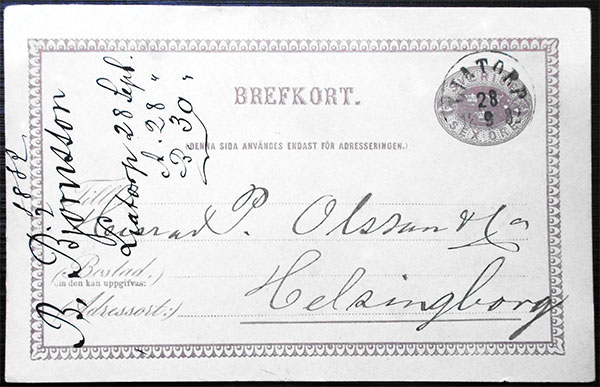 BREFKORT.
LIATORP
28
9
SVERIGE
SEX ÖRE
(DENNA SIDA ANVÄNDES ENDAST FÖR ADRESSERINGEN.)
Till
P. Olsson & Co
(Bostad.)
om den kan uppgifvas:
Helsingborg
(Adressort:)
1882
B. Bjørnsson
Liatorp 28 Sept.
A. 28 "
B 30 "